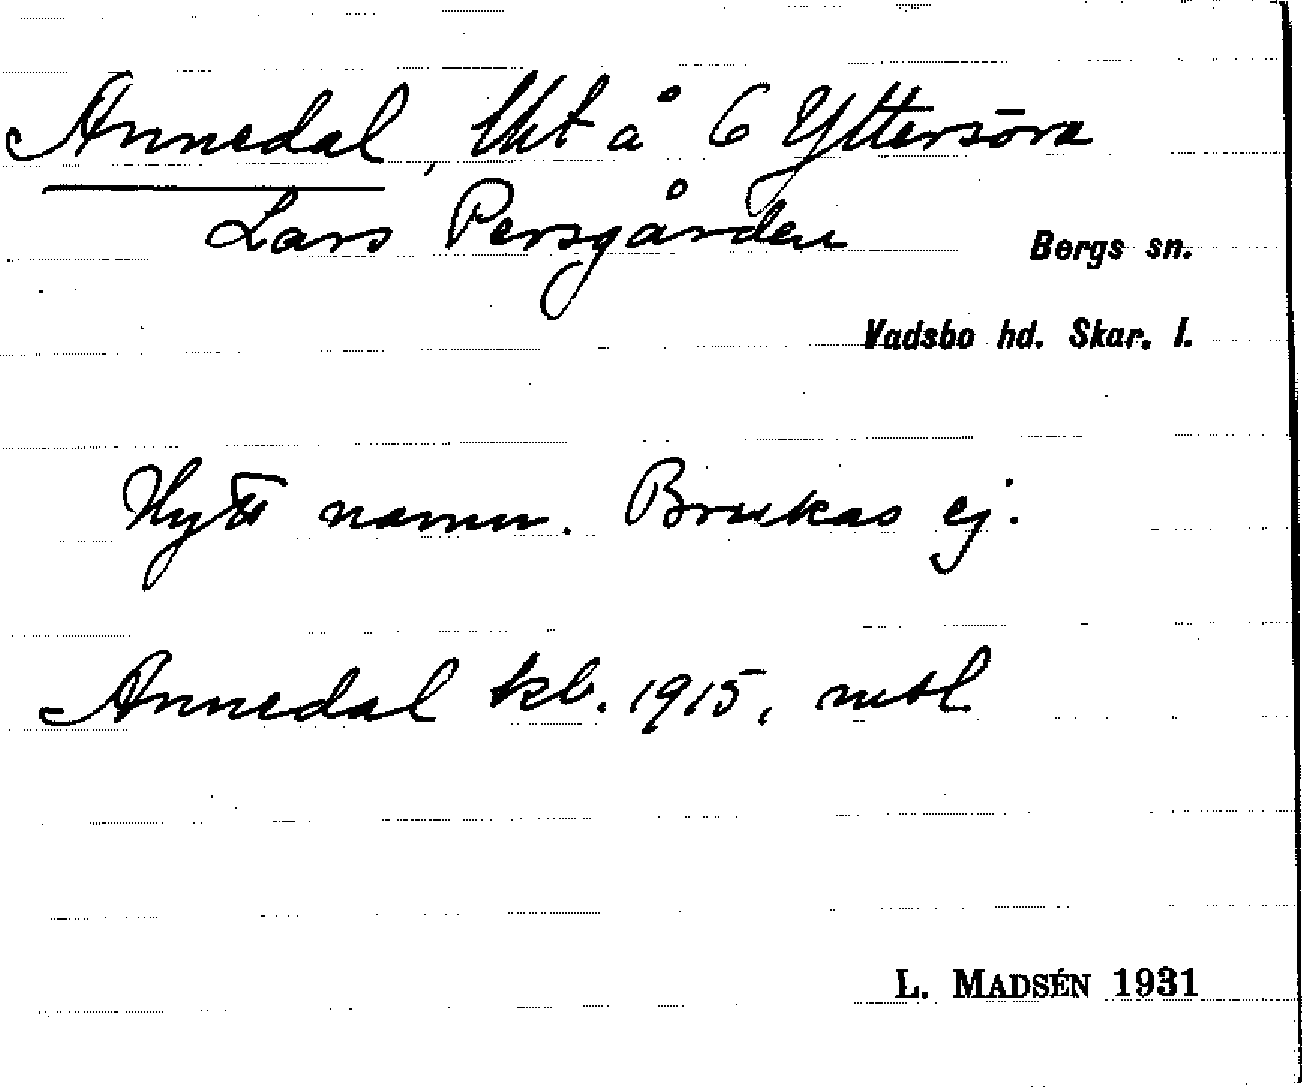 Annedal, lht å 6 Yttersöra
Lars Persgården
Bergs sn.
Vadsbo hd. Skar. l.
Nytt namn. Brukas ej.
Annedal kb. 1915, mtl
L. MADSÉN 1931